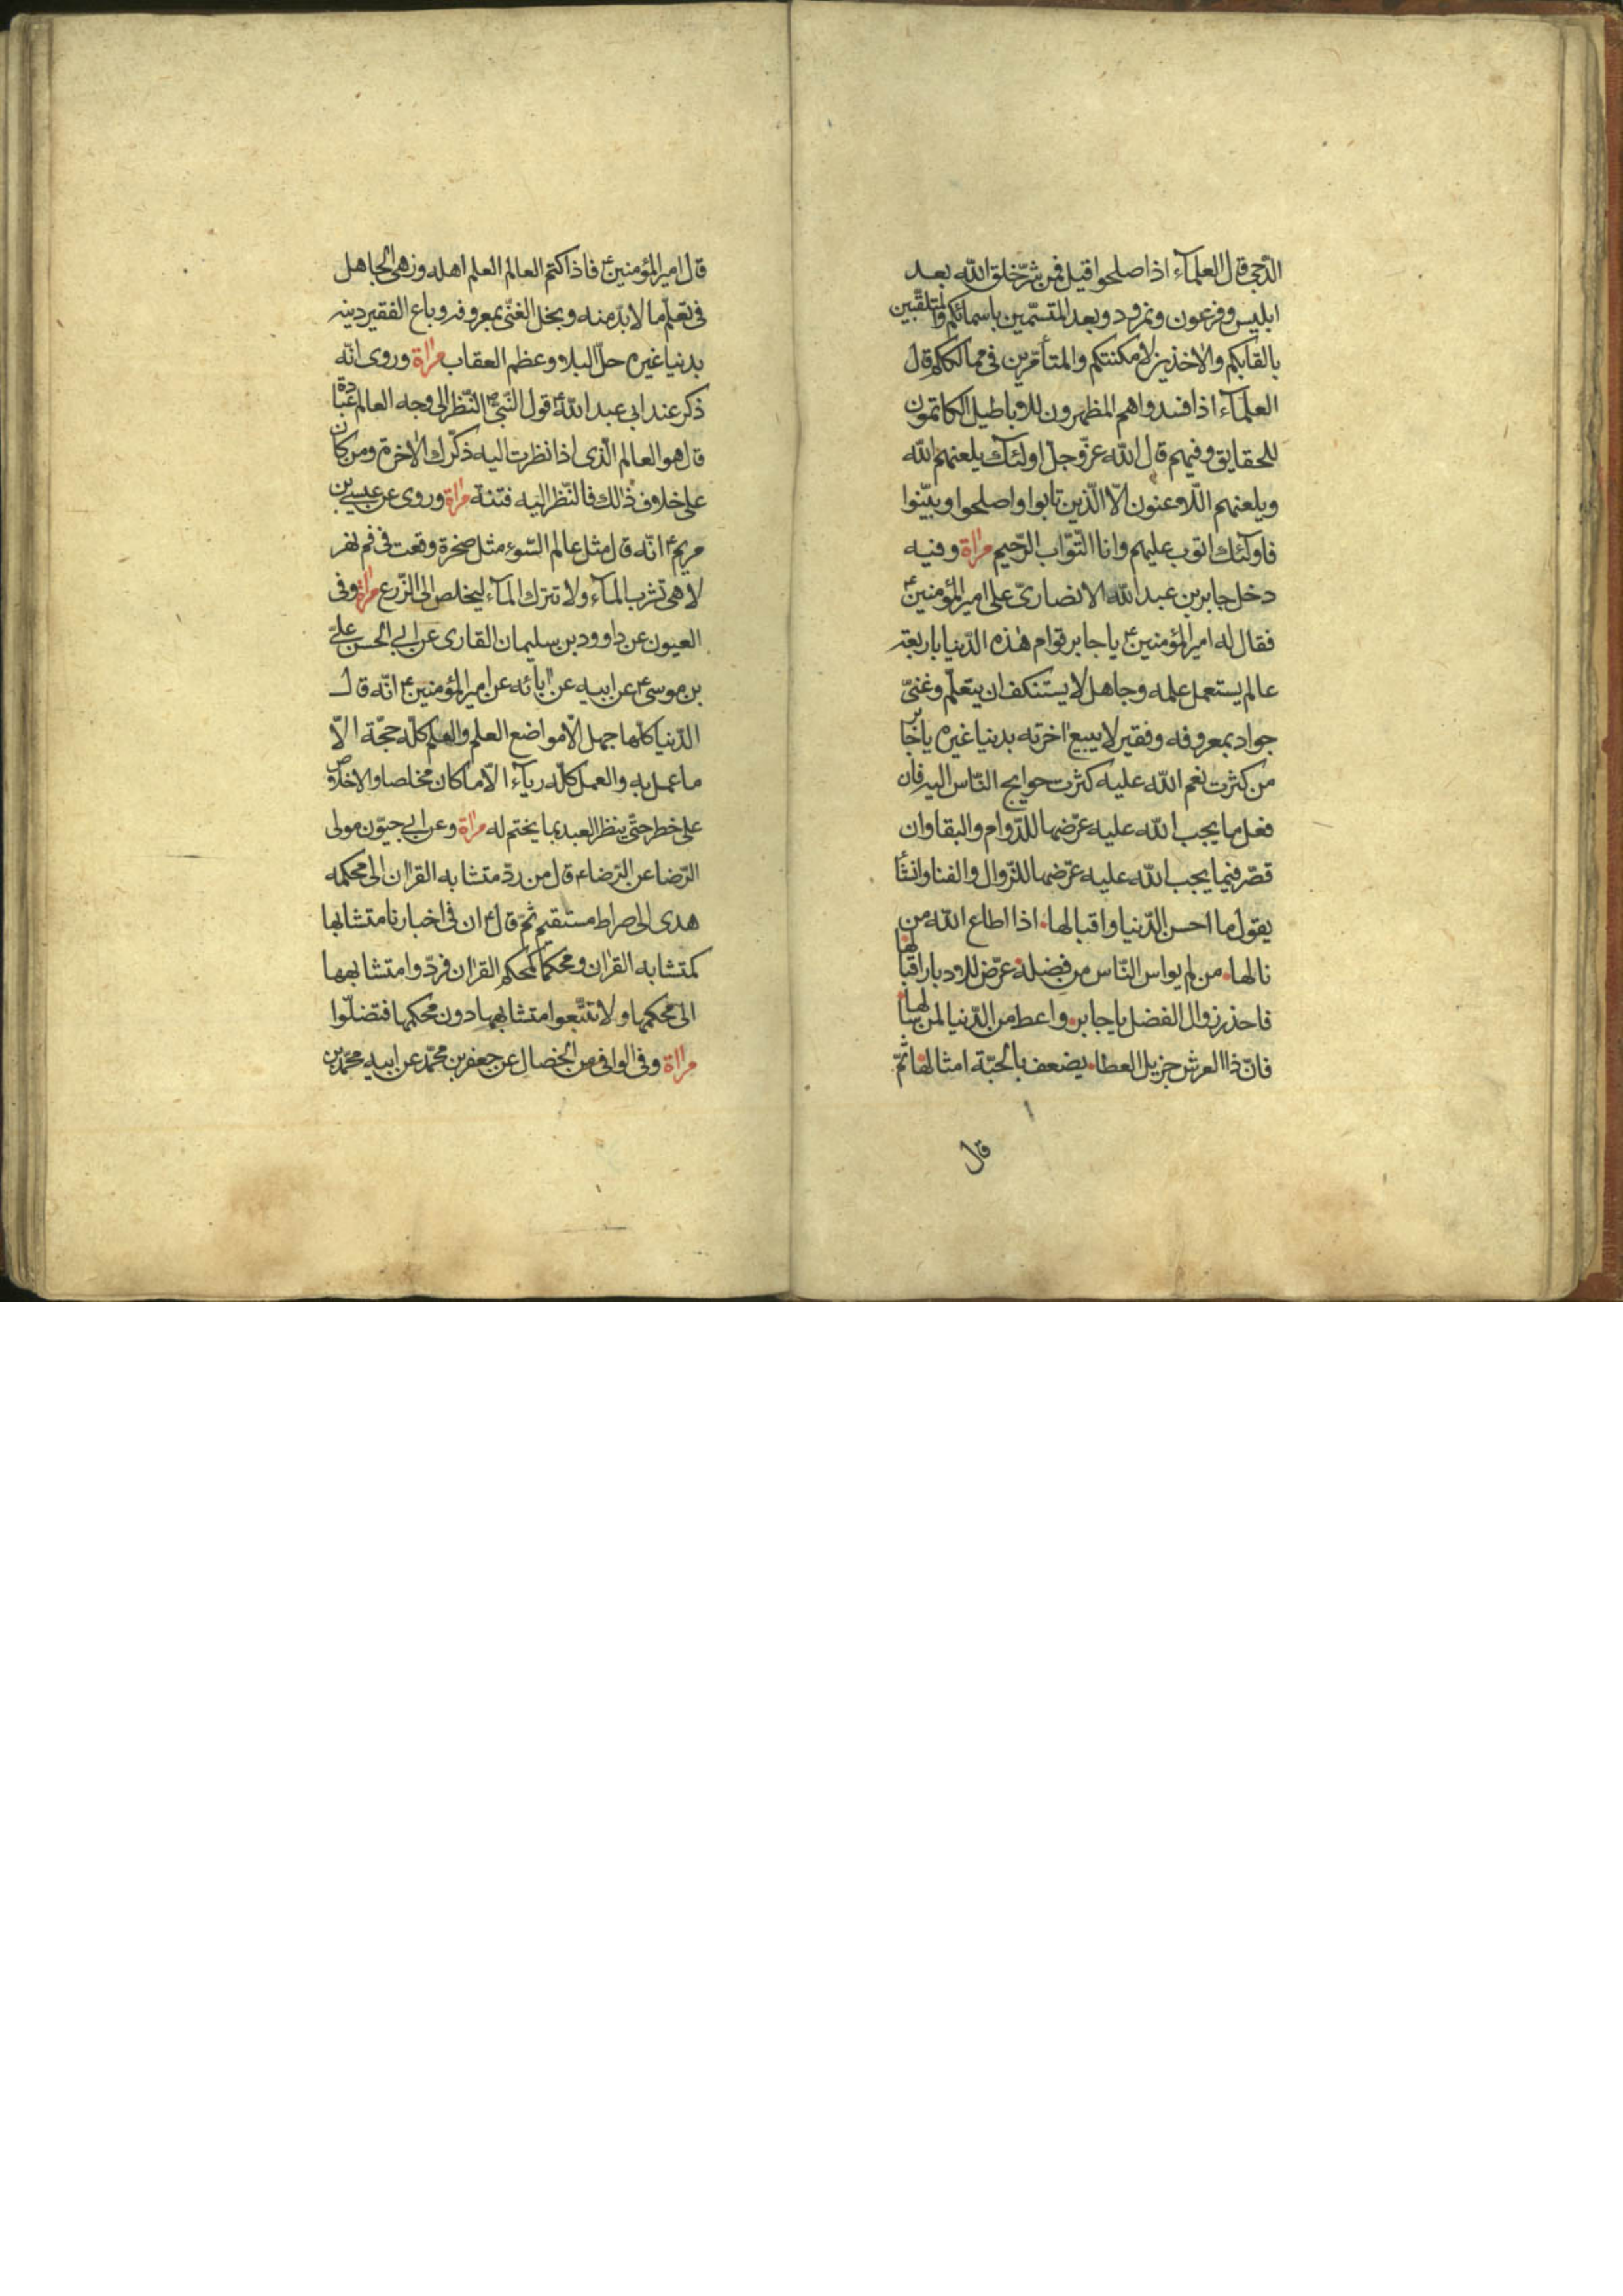 الدّجى قال العلمآء اذا صلحوا قيل فمن شرّ خلق الله بعد
ابليس و فرعون و نمرود و بعد المتسمّين باسمائكم والمتلقّبين
بالقابكم والاخذين لامكنتكم والمتأمّرين فى ممالككم قال
العلمآء اذا فسدوا هم المظهرون للاباطيل الكاتمون
للحقايق و فيهم قال الله عزّ و جلّ اولئك يلعنهم الله
و يلعنهم اللاعنون الّا الّذين تابوا و اصلحوا و بيّنوا
فاولئك اتوب عليهم و انا التّوّاب الرّحيم مراة و فيه
دخل جابر بن عبد الله الانصارىّ على امير المؤمنين ع
فقال له امير المؤمنين ع يا جابر قوام هٰذه الدّنيا باربعة
عالم يستعمل علمه و جاهل لا يستنكف ان يتعلّم و غنىّ
جواد بمعروفه و فقير لا يبيع اخرته بدنيا غيره يا جابر
من كثرت نعم الله عليه كثرت حوايج النّاس اليه فان
فعل ما يجب الله عليه عرّضها للدّوام والبقا و ان
قصّر فيما يجب الله عليه عرّضها للزّوال والفنا و انشأ
يقول ما احسن الدّنيا و اقبالها اذا اطاع الله من
نالها من لم يواس النّاس من فضله عرّض للادبار اقبالها
فاحذر زوال الفضل يا جابر و اعط من الدّنيا لمن سالها
فانّ ذا العرش جزيل العطا يضعف بالحبّة امثالها ثمّ
قال
قال امير المؤمنين ع فاذا كتم العالم العلم اهله و زهى الجاهل
فى تعلّم ما لا بدّ منه و بخل الغنىّ بمعروفه و باع الفقير دينه
بدنيا غيره حلّ البلاء و عظم العقاب مراة و روى انّه
ذكر عند ابى عبد الله ع قول النّبىّ ص النّظر الى وجه العالم عبادة
قال هو العالم الّذى اذا نظرت اليه ذكّرك الاخرة و من كان
على خلاف ذٰلك فالنّظر اليه فتنة مراة و روى عن عيسى بن
مريم ع انّه قال مثل عالم السّوء مثل صخرة وقعت فى فم نهر
لا هى تشرب المآء و لا تترك المآء ليخلص الى الزّرع مراة و فى
العيون عن داوود بن سليمان القارى عن ابى الحسن علىّ
بن موسى ع عن ابيه عن ابائه عن امير المؤمنين ع انّه قال
الدّنيا كلّها جهل الّا مواضع العلم والعلم كلّه حجّة الّا
ما عمل به والعمل كلّه ريآء الّا ما كان مخلصا والاخلاص
على خطر حتّى ينظر العبد بما يختم له مراة و عن ابى حيّون مولى
الرّضا عن الرّضا ع قال من ردّ متشابه القران الى محكمه
هدى الى صراط مستقيم ثمّ قال ع ان فى اخبارنا متشابها
كمتشابه القران و محكما كمحكم القران فردّوا متشابهها
الى محكمها و لا تتّبعوا متشابهها دون محكمها فتضلّوا
مراة و فى الوافى من الخصال عن جعفر بن محمّد عن ابيه محمّد بن